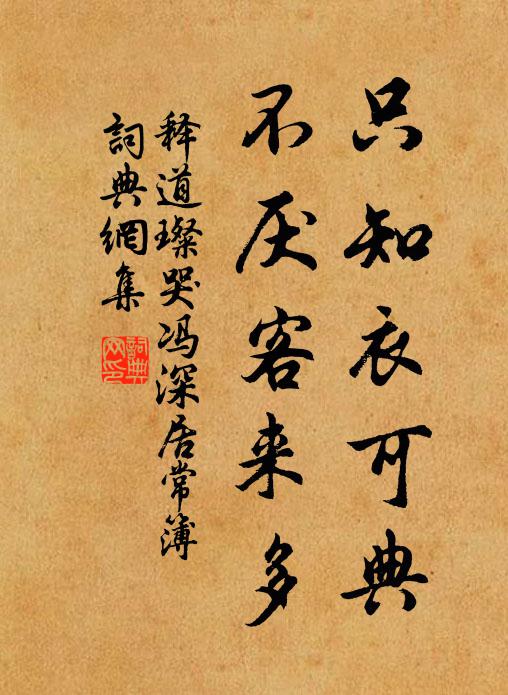 只知衣可典
不厌客来多
释道璨哭冯深居常簿
詞典網集
詞典网印